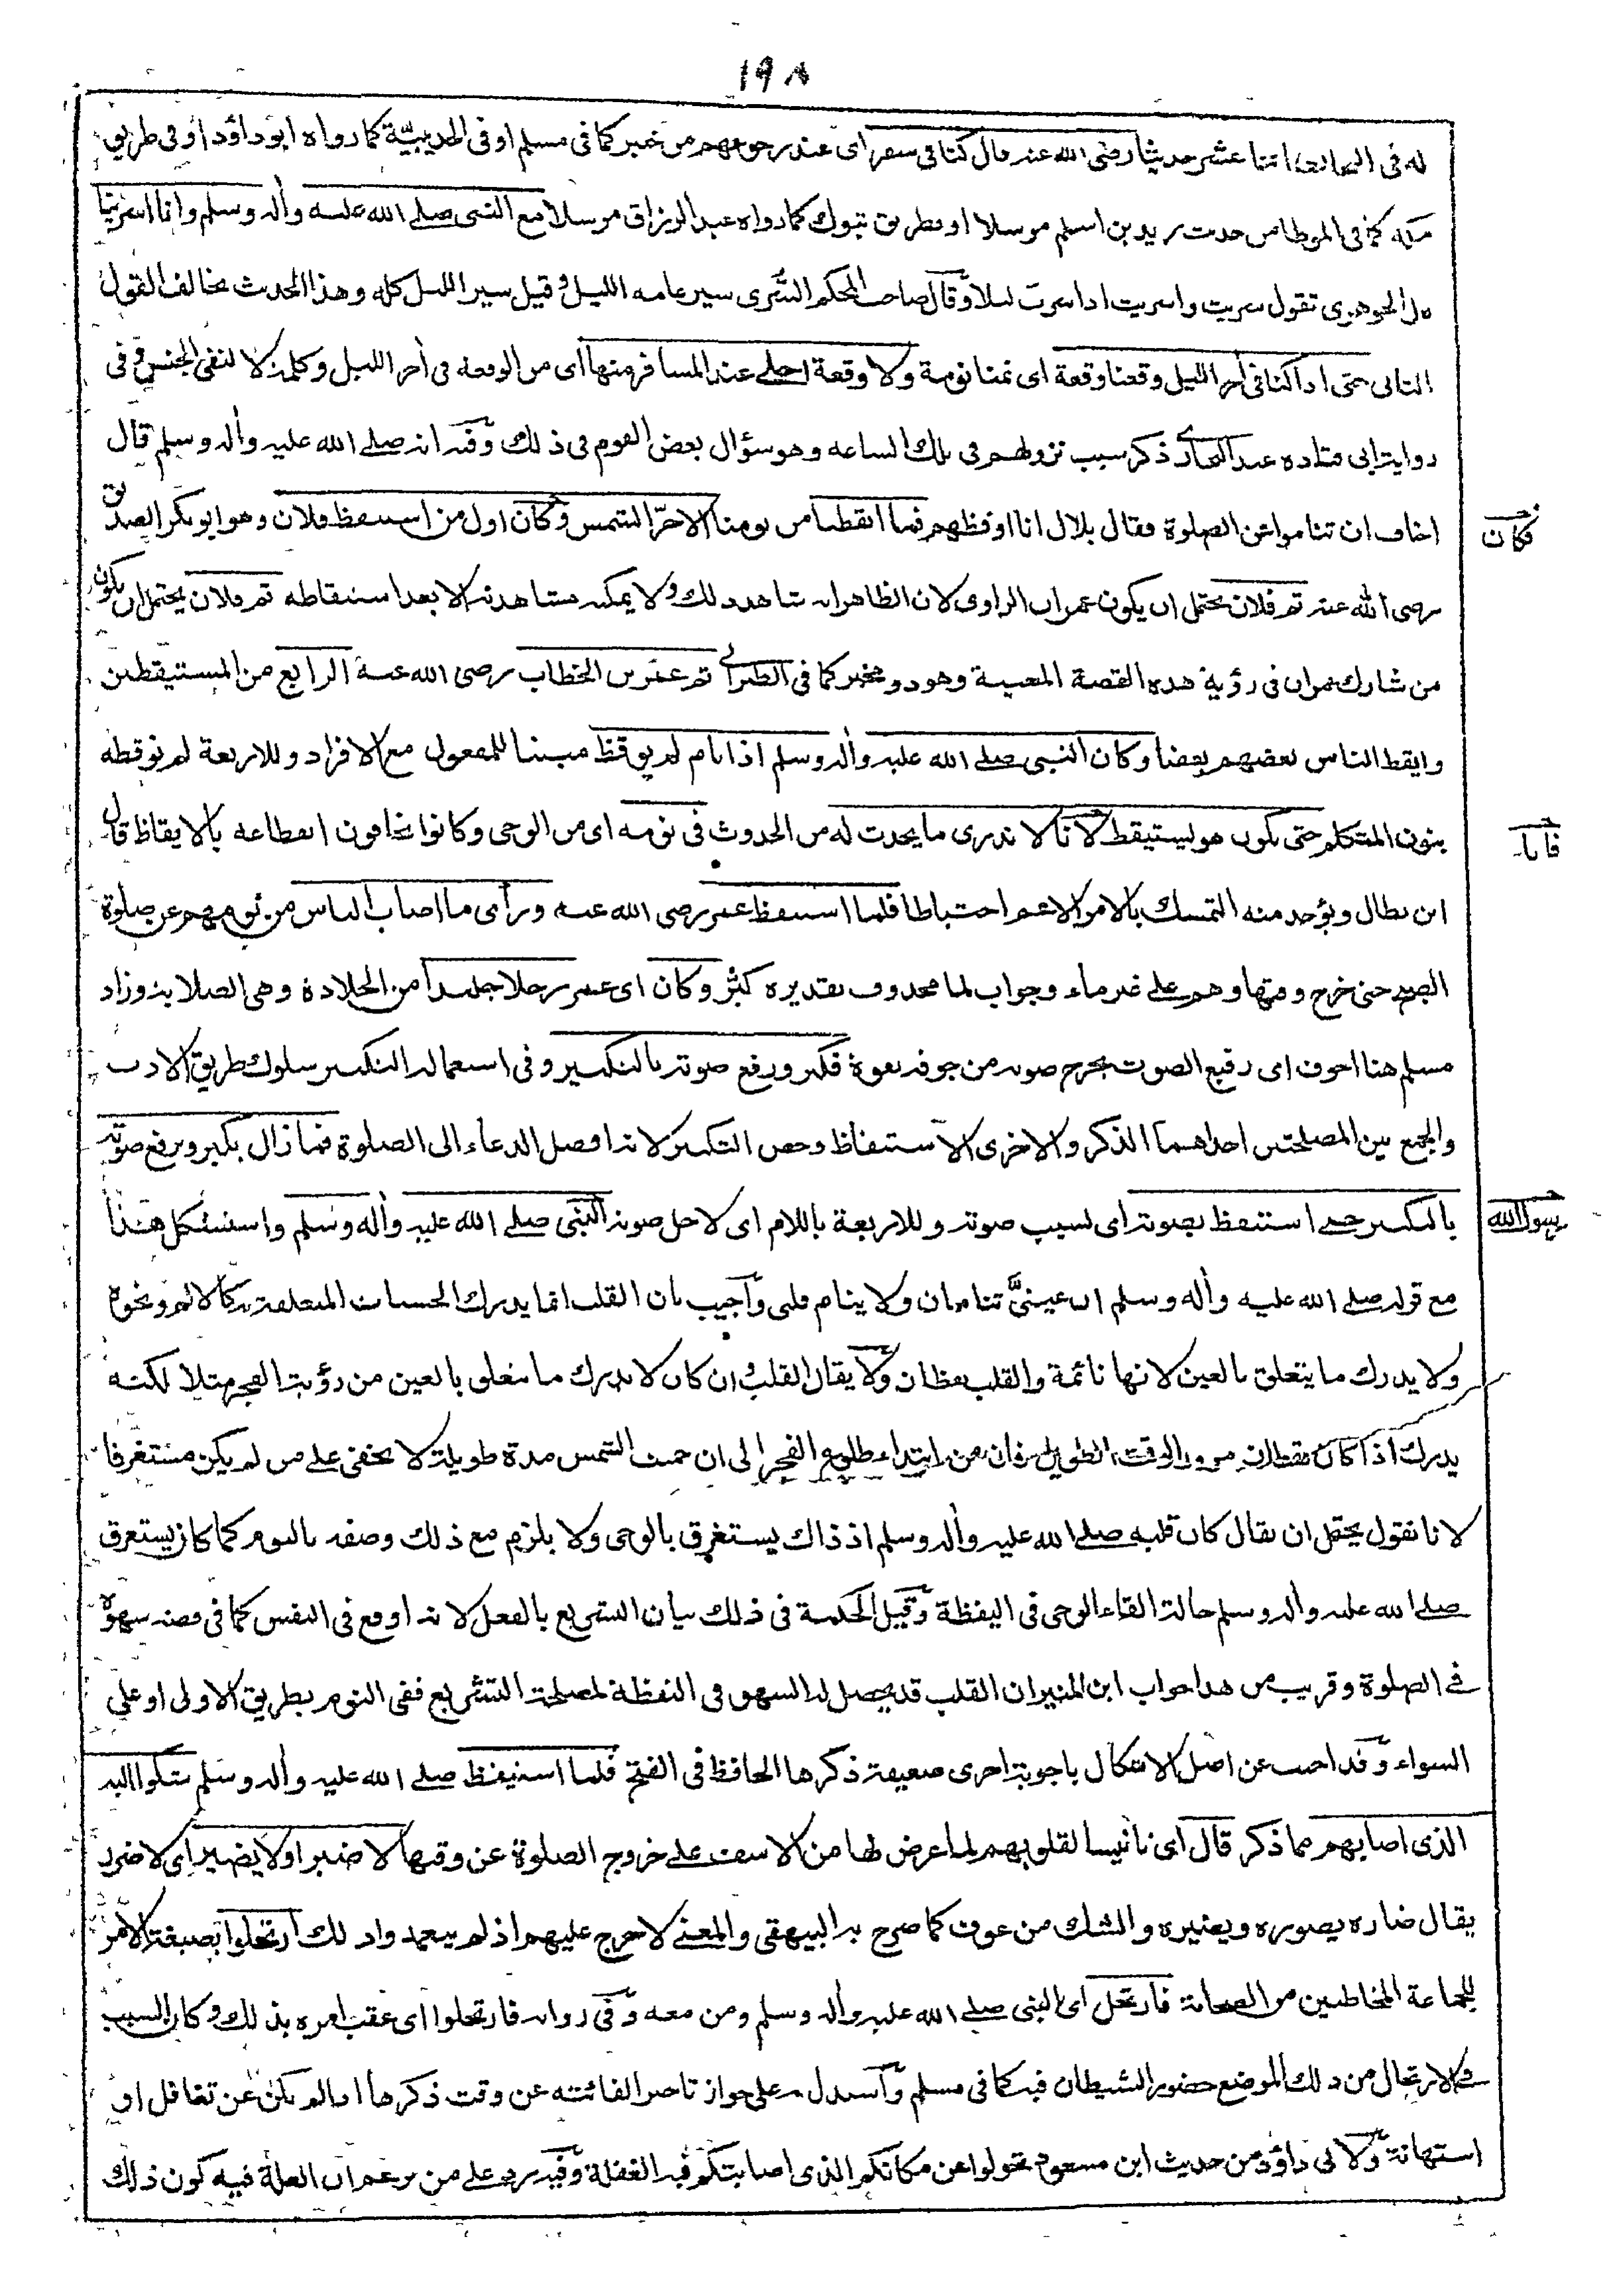 ١٩٨
له فى البخارى اثنا عشر حديثا رضى الله عنه قال كنا فى سفر اى عند رجوعهم من خيبر كما فى مسلم او فى الحديبيّة كما رواه ابو داؤد او فى طريق
مكة كما فى الموطا من حديث زيد بن اسلم مرسلا او بطريق تبوك كما رواه عبد الرزاق مرسلا مع النبى صلے الله عليه وأله وسلم وانا اسرينا
قال الجوهرى تقول سريت واسريت اذا سرت ليلا وقال صاحب المحكم السُّرى سير عامه الليل وقيل سير الليل كله وهذا الحديث يخالف القول
الثانى حتى اذا كنا فى أخر الليل وقعنا وقعة اى نمنا نومة ولا وقعة احلے عند المسافر منها اى من الوقعة فى أخر الليل وكلمة لا لنفى الجنس وفى
رواية ابى قتادة عند البخارى ذكر سبب نزولهم فى تلك الساعه وهو سؤال بعض القوم فى ذلك وفيه انه صلے الله عليه وأله وسلم قال
اخاف ان تناموا عن الصلوة فقال بلال انا اوقظهم فما ايقظنا من نومنا الا حرّ الشمس وكان اول من استيقظ فلان وهو ابو بكر الصديق
فكان
رضى الله عنه ثم فلان يحتمل ان يكون عمران الراوى لان الظاهر انه شاهد ذلك ولا يمكنه مشاهدته الا بعد استيقاظه ثم فلان يحتمل ان يكون
من شارك عمران فى رؤية هذه القصة المعينة وهو ذو مخبر كما فى الطبرانى ثم عمر بن الخطاب رضى الله عنه الرابع من المستيقظين
وايقظ الناس بعضهم بعضا وكان النبى صلے الله عليه وأله وسلم اذا نام لم يوقظ مبنيا للمفعول مع الافراد وللاربعة لم نوقظه
بنون المتكلم حتى يكون هو يستيقظ لانا لا ندرى ما يحدث له من الحدوث فى نومه اى من الوحى وكانوا يخافون انقطاعه بالايقاظ قال
ابن بطال ويؤخذ منه التمسك بالامر الاعم احتياطا فلما استيقظ عمر رضى الله عنه ورأى ما اصاب الناس من نومهم عن صلوة
الصبح حتى خرج وقتها وهم على غير ماء وجواب لما محذوف تقديره كبّر وكان اى عمر رجلا جليدا من الجلادة وهى الصلابة وزاد
مسلم هنا اجوف اى رفيع الصوت يخرج صوته من جوفه بقوة فكبر ورفع صوته بالتكبير وفى استعماله التكبير سلوك طريق الادب
والجمع بين المصلحتين احداهما الذكر والاخرى الاستيقاظ وخص التكبير لانه افضل الدعاء الى الصلوة فما زال يكبر ويرفع صوته
بالتكبير حتى استيقظ بصوته اى بسبب صوته وللاربعة باللام اى لاجل صوته النبى صلے الله عليه وأله وسلم واستشكل هذا
رسول الله
مع قوله صلے الله عليه وأله وسلم ان عينىَّ تنامان ولا ينام قلبى واجيب بان القلب انما يدرك الحسيات المتعلقة به كالالم ونحوه
ولا يدرك ما يتعلق بالعين لانها نائمة والقلب يقظان ولا يقال القلب وان كان لا يدرك ما يتعلق بالعين من رؤية الفجر مثلا لكنه
يدرك اذا كان يقظان مرور الوقت الطويل فان من ابتداء طلوع الفجر الى ان حميت الشمس مدة طويلة لا تخفى على من لم يكن مستغرقا
لانا نقول يحتمل ان يقال كان قلبه صلے الله عليه وأله وسلم اذ ذاك يستغرق بالوحى ولا يلزم مع ذلك وصفه بالنوم كما كان يستغرق
صلے الله عليه وأله وسلم حالة القاء الوحى فى اليقظة وقيل الحكمة فى ذلك بيان التشريع بالفعل لانه اوقع فى النفس كما فى قصة سهوه
فى الصلوة وقريب من هذا جواب ابن المنير ان القلب قد يحصل له السهو فى اليقظة لمصلحة التشريع ففى النوم بطريق الاولى او على
السواء وقد اجيب عن اصل الاشكال باجوبة اخرى ضعيفة ذكرها الحافظ فى الفتح فلما استيقظ صلے الله عليه وأله وسلم شكوا اليه
الذى اصابهم مما ذكر قال اى تانيسا لقلوبهم لما عرض لها من الاسف على خروج الصلوة عن وقتها لا ضير او لا يضير اى لا ضرر
يقال ضاره يضوره ويضيره والشك من عوف كما صرح به البيهقى والمعنى لا حرج عليهم اذ لم يتعمدوا ذلك ارتحلوا بصيغة الامر
للجماعة المخاطبين من الصحابة فارتحل اى النبى صلے الله عليه وأله وسلم ومن معه وفى رواية فارتحلوا اى عقب امره بذلك وكان السبب
فى الارتحال من ذلك الموضع حضور الشيطان فيه كما فى مسلم واستدل به على جواز تاخير الفائتة عن وقت ذكرها اذا لم يكن عن تغافل او
استهانة ولابى داؤد من حديث ابن مسعود تحولوا عن مكانكم الذى اصابتكم فيه الغفلة وفيه رد على من زعم ان العلة فيه كون ذلك